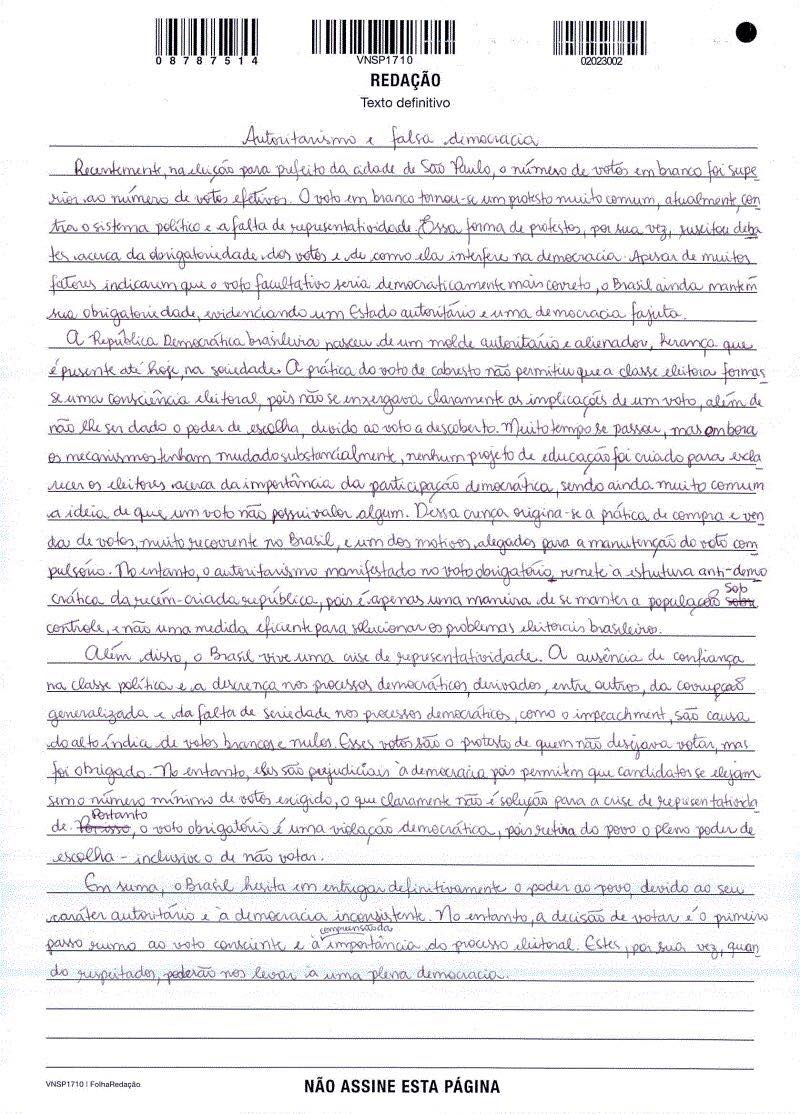 08787514
VNSP1710
02023002
REDAÇÃO
Texto definitivo
Autoritarismo e falsa democracia
Recentemente, na eleição para prefeito da cidade de São Paulo, o número de votos em branco foi supe
rior ao número de votos efetivos. O voto em branco tornou-se um protesto muito comum, atualmente, con
tra o sistema político e a falta de representatividade. Essa forma de protestos, por sua vez, suscitou deba
tes acerca da obrigatoriedade dos votos e de como ela interfere na democracia. Apesar de muitos
fatores indicarem que o voto facultativo seria democraticamente mais correto, o Brasil ainda mantém
sua obrigatoriedade, evidenciando um Estado autoritário e uma democracia fajuta.
A República Democrática brasileira nasceu de um molde autoritário e alienador, herança que
é presente até hoje, na sociedade. A prática do voto de cabresto não permitiu que a classe eleitora formas
se uma consciência eleitoral, pois não se enxergava claramente as implicações de um voto, além de
não lhe ser dado o poder de escolha, devido ao voto a descoberto. Muito tempo se passou, mas embora
os mecanismos tenham mudado substancialmente, nenhum projeto de educação foi criado para escla
recer os eleitores acerca da importância da participação democrática, sendo ainda muito comum
a ideia de que um voto não possui valor algum. Dessa crença origina-se a prática de compra e ven
da de votos, muito recorrente no Brasil, e um dos motivos alegados para a manutenção do voto com
pulsório. No entanto, o autoritarismo manifestado no voto obrigatório, remete à estrutura anti-demo
crática da recém-criada república, pois é apenas uma maneira de se manter a população sobre Sob
controle, e não uma medida eficiente para solucionar os problemas eleitorais brasileiros.
Além disso, o Brasil vive uma crise de representatividade. A ausência de confiança
na classe política e a descrença nos processos democráticos derivados, entre outros, da corrupção
generalizada e da falta de seriedade nos processos democráticos, como o impeachment, são causa
do alto índice de votos brancos e nulos. Esses votos são o protesto de quem não desejava votar, mas
foi obrigado. No entanto, eles são prejudiciais à democracia pois permitem que candidatos se elejam
sem o número mínimo de votos exigido, o que claramente não é solução para a crise de representativida
de. Por isso Portanto, o voto obrigatório é uma violação democrática, pois retira do povo o pleno poder de
escolha - inclusive o de não votar.
Em suma, o Brasil hesita em entregar definitivamente o poder ao povo, devido ao seu
caráter autoritário e à democracia inconsistente. No entanto, a decisão de votar é o primeiro
passo rumo ao voto consciente e à compreensão da importância do processo eleitoral. Estes, por sua vez, quan
do respeitados, poderão nos levar à uma plena democracia.
VNSP1710 | FolhaRedação
NÃO ASSINE ESTA PÁGINA